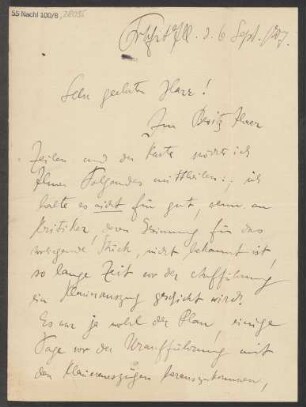 55 Nachl 100/B,
6 Sept.
Sehr geehrter Herr!
Im Besitz Ihrer
Zeilen und der Karte möchte ich
Ihnen Folgendes mittheilen: ich
halte es nicht für gut, wenn an
Kritiker, deren Gesinnung für das
vorliegende Stück, nicht bekannt ist,
so lange Zeit vor der Aufführung
ein Klavierauszug geschickt wird.
Es war ja wohl der Plan, einige
Tage vor der Uraufführung mit
den Klavierauszügen herauszukommen,